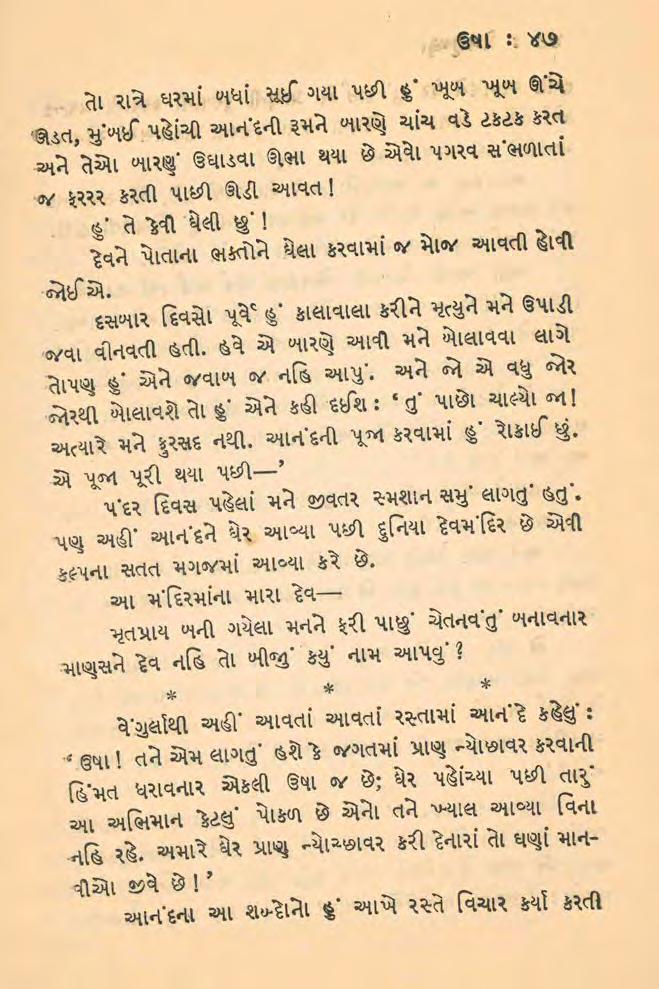 ઉષા : ૪૭
તો રાત્રે ઘરમાં બધાં સૂઈ ગયા પછી હું ખૂબ ખૂબ ઊંચે
ઊડત, મુંબઈ પહોંચી આનંદની રૂમને બારણે ચાંચ વડે ટકટક કરત
અને તેઓ બારણું ઉઘાડવા ઊભા થયા છે એવો પગરવ સંભળાતાં
જ ફરરર કરતી પાછી ઊડી આવત!
હું તે કેવી ઘેલી છું!
દેવને પોતાના ભક્તોને ઘેલા કરવામાં જ મોજ આવતી હોવી
જોઈએ.
દસબાર દિવસો પૂર્વે હું કાલાવાલા કરીને મૃત્યુને મને ઉપાડી
જવા વીનવતી હતી. હવે એ બારણે આવી મને બોલાવવા લાગે
તોપણ હું એને જવાબ જ નહિ આપું. અને જો એ વધુ જોર
જોરથી બોલાવશે તો હું એને કહી દઈશ : ‘તું પાછો ચાલ્યો જા!
અત્યારે મને ફુરસદ નથી. આનંદની પૂજા કરવામાં હું રોકાઈ છું.
એ પૂજા પૂરી થયા પછી—’
પંદર દિવસ પહેલાં મને જીવતર સ્મશાન સમું લાગતું હતું.
પણ અહીં આનંદને ઘેર આવ્યા પછી દુનિયા દેવમંદિર છે એવી
કલ્પના સતત મગજમાં આવ્યા કરે છે.
આ મંદિરમાંના મારા દેવ—
મૃતપ્રાય બની ગયેલા મનને ફરી પાછું ચેતનવંતું બનાવનાર
માણસને દેવ નહિ તો બીજું કયું નામ આપવું?
* * *
વેંગુર્લાથી અહીં આવતાં આવતાં રસ્તામાં આનંદે કહેલું :
‘ઉષા! તને એમ લાગતું હશે કે જગતમાં પ્રાણ ન્યોછાવર કરવાની
હિંમત ધરાવનાર એકલી ઉષા જ છે; ઘેર પહોંચ્યા પછી તારું
આ અભિમાન કેટલું પોકળ છે એનો તને ખ્યાલ આવ્યા વિના
નહિ રહે. અમારે ઘેર પ્રાણ ન્યોચ્છાવર કરી દેનારાં તો ઘણાં માન-
વીઓ જીવે છે!’
આનંદના આ શબ્દોનો હું આખે રસ્તે વિચાર કર્યા કરતી